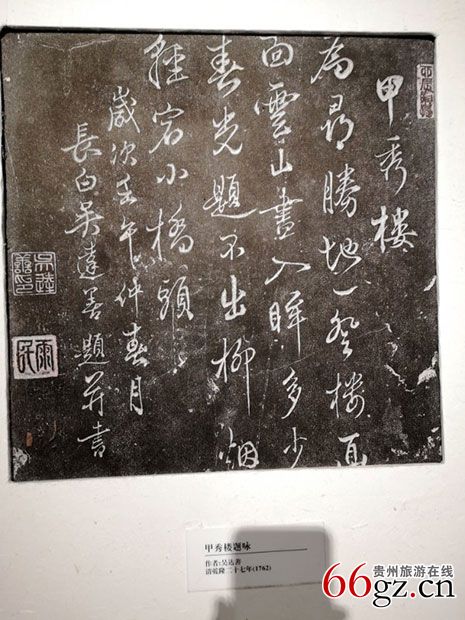 甲秀樓
為尋勝地一登樓面
面雲山畫入眸多少
春光題不出柳烟
輕宕小橋頭
歲次壬午仲春月
長白吳達善題并書
吳達善印
雨民
甲秀楼题咏
作者:吴达善
清乾隆二十七年(1762)
贵州旅游在线
66gz.cn